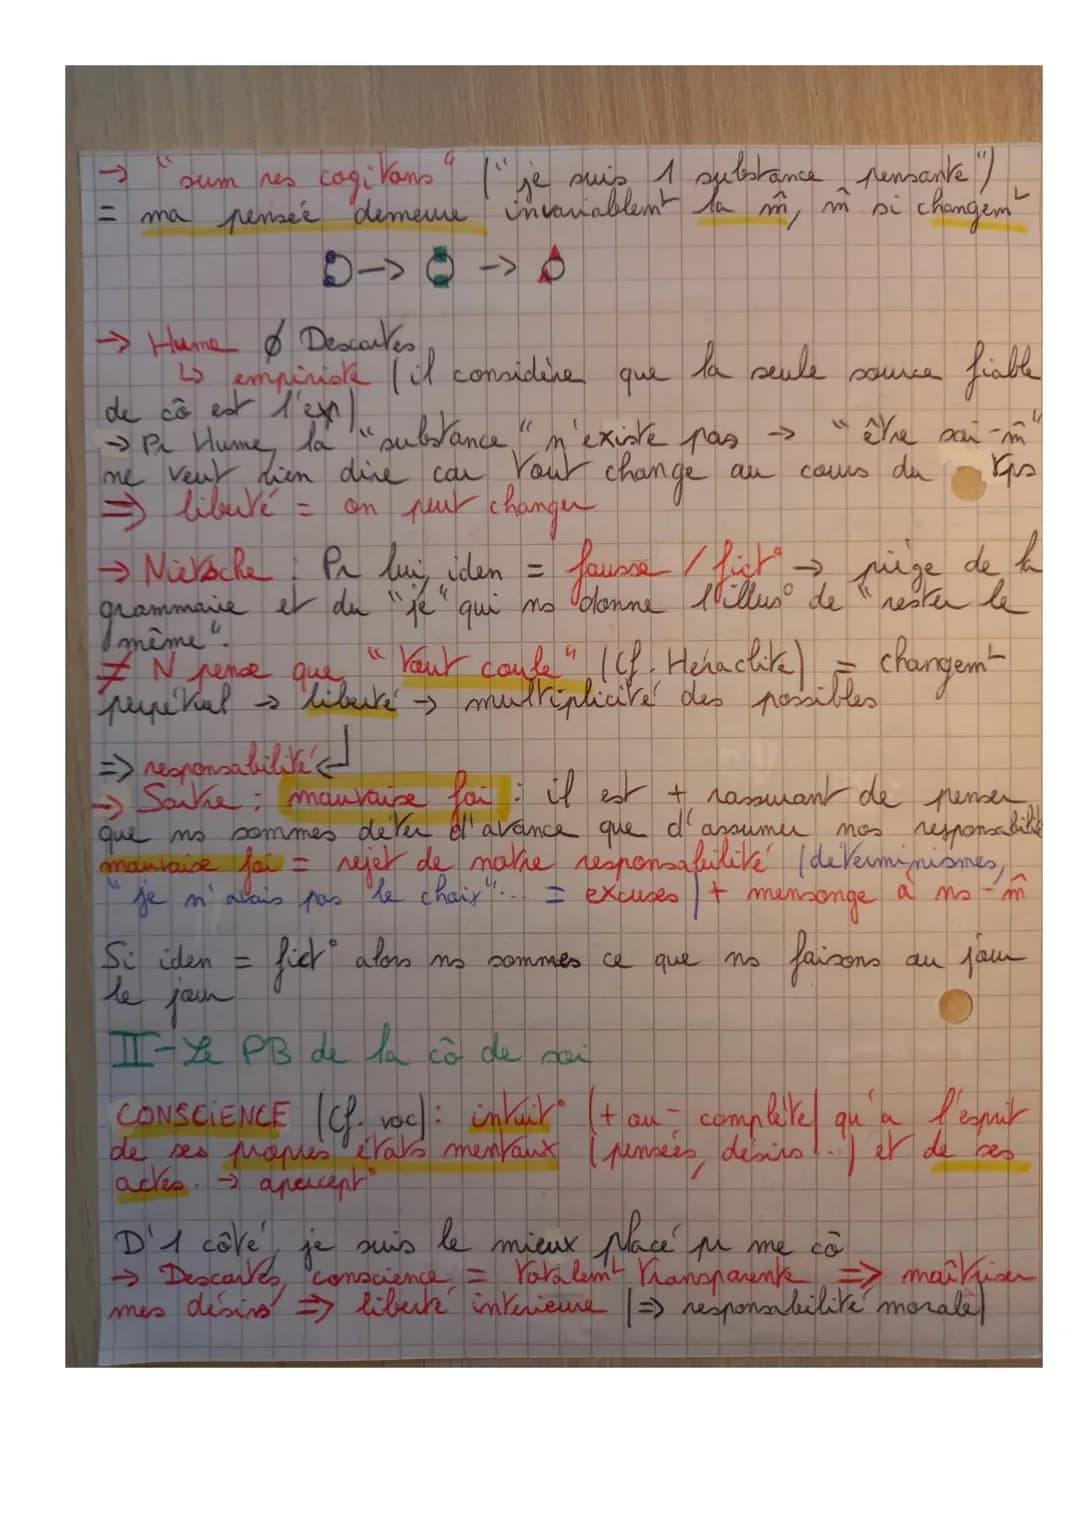 → "sum res cogitans" ("je suis 1 substance pensante")
= ma pensée demeure invariablemt la m̂, m̂ si changemt
→ → 
→ Hume ∅ Descartes
↳ empiriste (il considère que la seule source fiable
de cô est l'exp)
→ Pr Hume, la "substance" n'existe pas → "être soi-m̂"
ne veut rien dire car tout change au cours du tps
⇒ liberté = on peut changer
→ Nietzsche : Pr lui, iden = fausse / fict° → piège de la
grammaire et du "je" qui ns donne l'illus° de "rester le
même".
≠ N pense que "tout coule" (Cf. Héraclite) = changemt
perpétuel → liberté → multiplicité des possibles
⇒ responsabilité ↵
→ Sartre : mauvaise foi : il est + rassurant de penser
que ns sommes déter d'avance que d'assumer nos responsabilité
mauvaise foi = rejet de notre responsabilité (déterminismes,
"je n'avais pas le choix"... = excuses) + mensonge à ns-m̂
Si iden = fict° alors ns sommes ce que ns faisons au jour
le jour
II - Le PB de la cô de soi
CONSCIENCE (Cf. voc) : intuit° (+ ou - complète) qu'a l'esprit
de ses propres états mentaux (pensées, désirs...) et de ses
actes. → apercept°
D'1 côté, je suis le mieux placé pr me cô
→ Descartes, conscience = totalemt transparente ⇒ maîtriser
mes désirs ⇒ liberté intérieure (⇒ responsabilité morale)